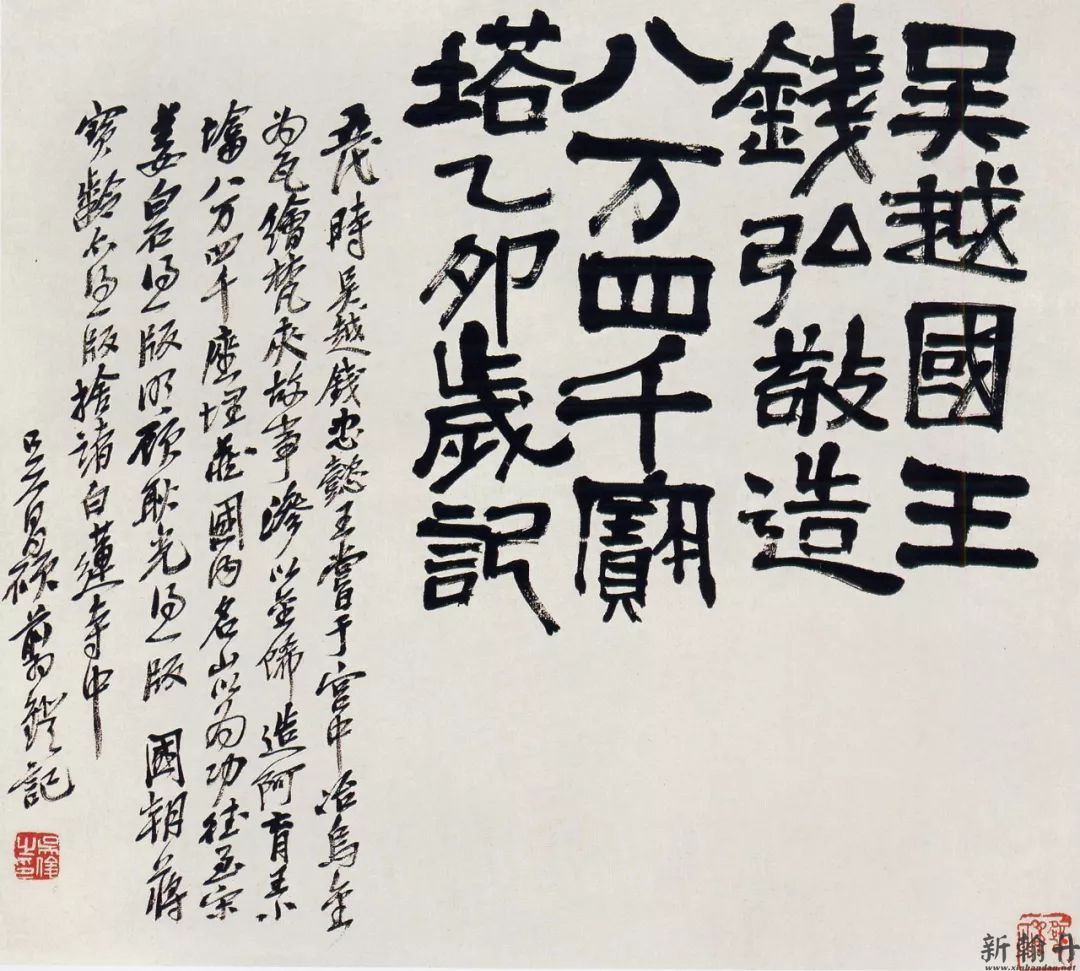 吴越國王
錢弘敬造
八万四千寶
塔乙卯歲記
五代時吴越錢忠懿王嘗于宫中冶烏金
为瓦繪梵夾故事滲以金飾造阿育王小
墖八万四千座埋藏國内名山以为功德至宋
姜白石得一版明顧耿光得一版 國朝蔣
寶齡亦得一版捨諸白蓮寺中
吴昌碩翦鐙記
吳俊之印
新翰丹